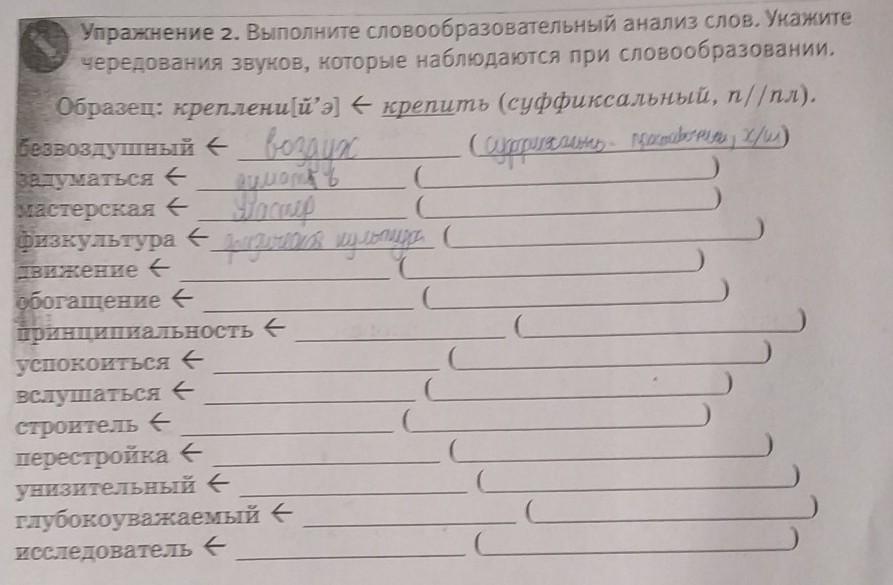 Упражнение 2. Выполните словообразовательный анализ слов. Укажите
чередования звуков, которые наблюдаются при словообразовании.
Образец: креплени[й’э] ← крепить (суффиксальный, п//пл).
безвоздушный ← воздух (суффиксально- приставочный, х/ш)
задуматься ← думать (
)
мастерская ← Мастер (
)
физкультура ← физическая культура (
)
движение ← (
)
обогащение ← (
)
принципиальность ← (
)
успокоиться ← (
)
вслушаться ← (
)
строитель ← (
)
перестройка ← (
)
унизительный ← (
)
глубокоуважаемый ← (
)
исследователь ← (
)